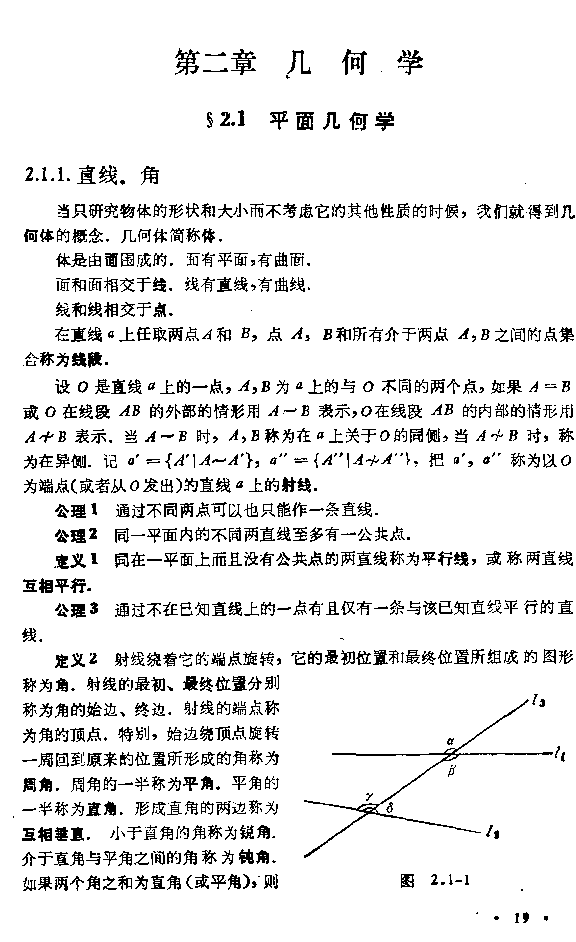 第二章 几 何 学
§2.1 平面几何学
2.1.1. 直线、角
当只研究物体的形状和大小而不考虑它的其他性质的时候，我们就得到几
何体的概念．几何体简称体．
体是由面围成的．面有平面，有曲面．
面和面相交于线．线有直线，有曲线．
线和线相交于点．
在直线 a 上任取两点 A 和 B，点 A，B 和所有介于两点 A，B 之间的点集
合称为线段．
设 O 是直线 a 上的一点，A，B 为 a 上的与 O 不同的两个点，如果 A＝B
或 O 在线段 AB 的外部的情形用 A∼B 表示，O在线段 AB 的内部的情形用
A≁B 表示．当 A∼B 时，A，B 称为在 a 上关于O的同侧，当 A≁B 时，称
为在异侧．记 a′＝{A′|A∼A′}，a″＝{A″|A≁A″}，把 a′，a″ 称为以O
为端点(或者从O发出)的直线 a 上的射线．
公理1 通过不同两点可以也只能作一条直线．
公理2 同一平面内的不同两直线至多有一公共点．
定义1 同在一平面上而且没有公共点的两直线称为平行线，或称两直线
互相平行．
公理3 通过不在已知直线上的一点有且仅有一条与该已知直线平行的直
线．
定义2 射线绕着它的端点旋转，它的最初位置和最终位置所组成的图形
称为角．射线的最初、最终位置分别
称为角的始边、终边．射线的端点称
为角的顶点．特别，始边绕顶点旋转
一周回到原来的位置所形成的角称为
周角．周角的一半称为平角．平角的
一半称为直角．形成直角的两边称为
互相垂直． 小于直角的角称为锐角．
介于直角与平角之间的角称为钝角．
如果两个角之和为直角(或平角)，则
l₃
α
l₁
β
γ
δ
l₂
图 2.1-1
· 19 ·